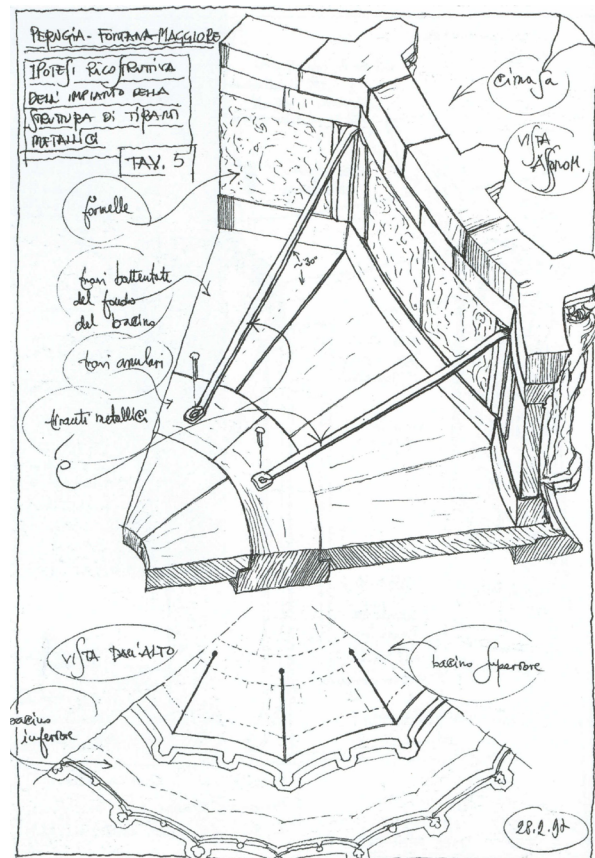 PERUGIA - FONTANA MAGGIORE
IPOTESI RICOSTRUTTIVA
DELL'IMPIANTO DELLA
STRUTTURA DI TIRANTI
METALLICI
TAV. 5
cimasa
VISTA
ASSNOM.
formelle
travi battentate
del fondo
del bacino
travi anulari
tiranti metallici
~30°
VISTA DALL'ALTO
bacino superiore
bacino
inferiore
28.2.92